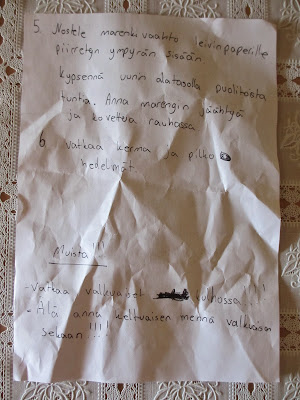 5. Nostele marenkivaahto leivinpaperille
piirretyn ympyrän sisään
Kypsennä uunin alatasolla puolitoista
tuntia. Anna marengin jäähtyä
ja kovettua rauhassa
6. Vatkaa kerma ja pilko
hedelmät.
Muista!!!
-Vatkaa valkuaiset kulhossa!!!
- Älä anna keltuaisen mennä valkuaisen
sekaan!!!